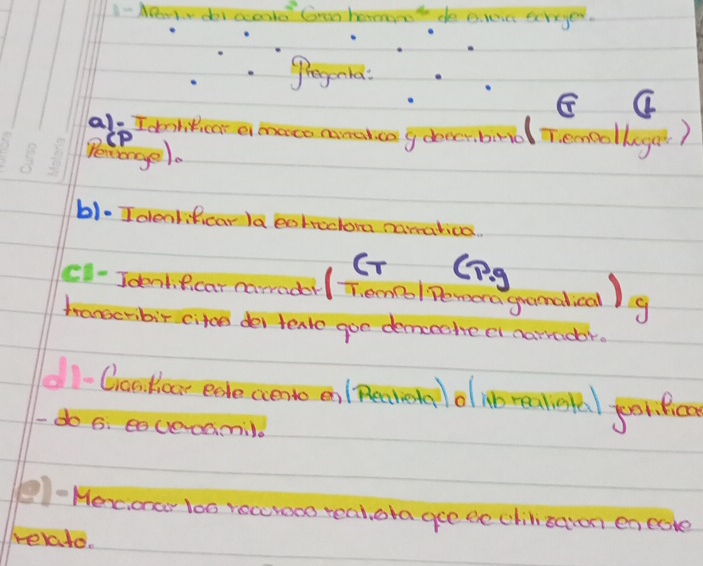 1- Apartir del cuento "Gran hermano" de
Pregunta:
T L
a)- Identificar el marco narrativo y describirlo (Tiempo/Lugar)
P
Personaje).
b)- Identificar la estroctora narrativa.
T P.g
c)- Identificar narrador (Tiempo/Persona gramatical) y
transcribir citas del texto que demuestre el narrador.
d)- Clasificar este cuento en (Realista) o (No realista) justifican
- do si es verosimil.
e)- Mencionar los recursos realista que se utilizaron en este
relato.
Curso
Materia